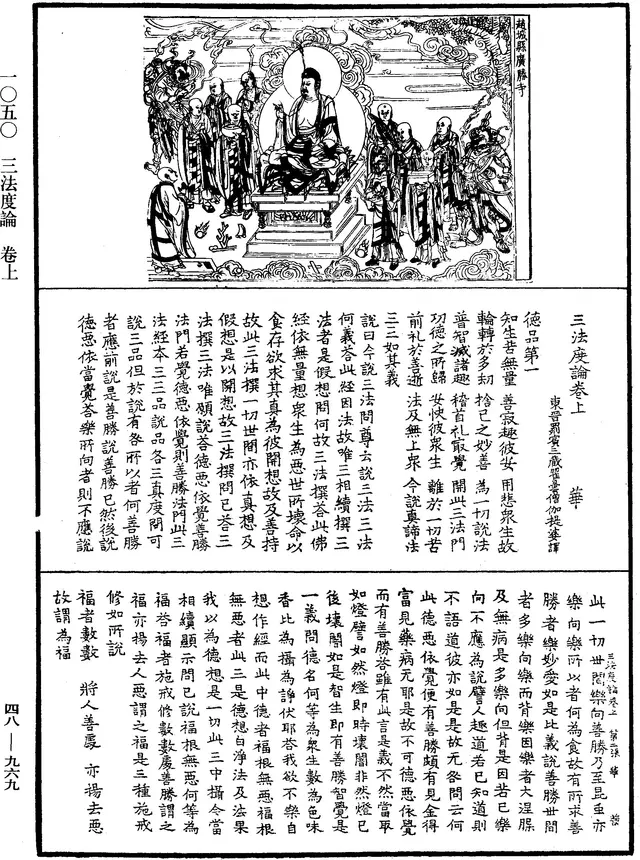 趙城縣廣勝寺
三法度論卷上 華
東晉罽賓三藏瞿曇僧伽提婆譯
德品第一
知生苦無量 善寂趣彼安 用悲衆生故
輪轉於多劫 捨已之妙善 為一切說法
普智滅諸趣 稽首礼取覺 開此三法門
功德之所歸 安快彼衆生 離於一切苦
前礼於善逝 法及無上衆 今說真諦法
三三如其義
說曰今說三法問尊云說三法三法
何義荅此經因法故唯三相續撰三
法者是假想問何故三法撰荅此佛
經依無量想衆生為惡世所壞命以
食存欲求其真為彼開想故及善持
故此三法撰一切世間亦依真想及
假想是以開想故三法撰問已荅三
法撰三法唯願說荅德惡依覺善勝
法門若覺德惡依覺則善勝法門此三
法經本三三品說品各三真度問可
說三品但於說有咎所以者何善勝
者應前說是善勝說善勝已然後說
德惡依當覺荅樂所向者則不應說
三法度論卷上 第二張 華
此一切世間樂向善勝乃至昆虫亦
樂向樂所以者何為食故有所求善
勝者樂妙愛如是比義說善勝世間
者多樂向樂而背樂因樂者大涅槃
及無病是多樂向但背是因若已樂
向一不應為說譬人趣道若已知道則
不語道彼亦如是是故无咎問云何
此德惡依覺便有善勝頗有見金得
富見藥病无耶是故不可德惡依覺
而有善勝荅雖有此言是義不然當取
如燈譬如然燈即時壞闇非然燈已
後壞闇如是智生即有善勝智覺是
一義問德名何等為衆生數為色味
香比為攝為諍伏耶荅我欲不樂自
想作經而此中德者福根無惡福根
無惡者此三是德想白淨法及法果
我以為德想是一切此三中攝今當
相續顯示問已說福根無惡何等為
福荅福者施戒修數數處善勝謂之
福亦揚去人惡謂之福是三種施戒
修如所說
福者數數 將人善處 亦揚去惡
故謂為福
一〇五〇 三法度論 卷上
四八—九六九